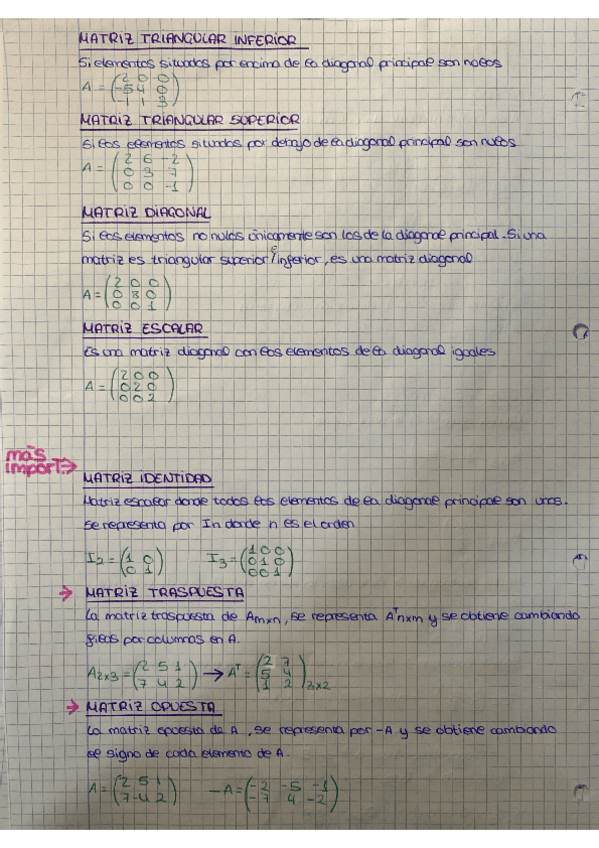 MATRIZ TRIANGULAR INFERIOR
Si elementos situados por encima de la diagonal principal son nulos
A = (2 0 0
-5 4 0
-1 1 3)
MATRIZ TRIANGULAR SUPERIOR
Si los elementos situados por debajo de la diagonal principal son nulos
A = (2 6 -2
0 3 7
0 0 -1)
MATRIZ DIAGONAL
Si los elementos no nulos únicamente son los de la diagonal principal. Si una
matriz es triangular superior/e inferior, es una matriz diagonal
A = (2 0 0
0 3 0
0 0 1)
MATRIZ ESCALAR
Es una matriz diagonal con los elementos de la diagonal iguales
A = (2 0 0
0 2 0
0 0 2)
más
import.→
MATRIZ IDENTIDAD
Matriz escalar donde todos los elementos de la diagonal principal son unos.
Se representa por In donde n es el orden
I2 = (1 0
0 1) I3 = (1 0 0
0 1 0
0 0 1)
→ MATRIZ TRASPUESTA
La matriz traspuesta de Amxn, se representa Aᵀnxm y se obtiene cambiando
filas por columnas en A.
A2x3 = (2 5 1
7 4 2) → Aᵀ = (2 7
5 4
1 2)3x2
→ MATRIZ OPUESTA
La matriz opuesta de A, se representa por -A y se obtiene cambiando
el signo de cada elemento de A.
A = (2 5 1
7 -4 2) -A = (-2 -5 -1
-7 4 -2)